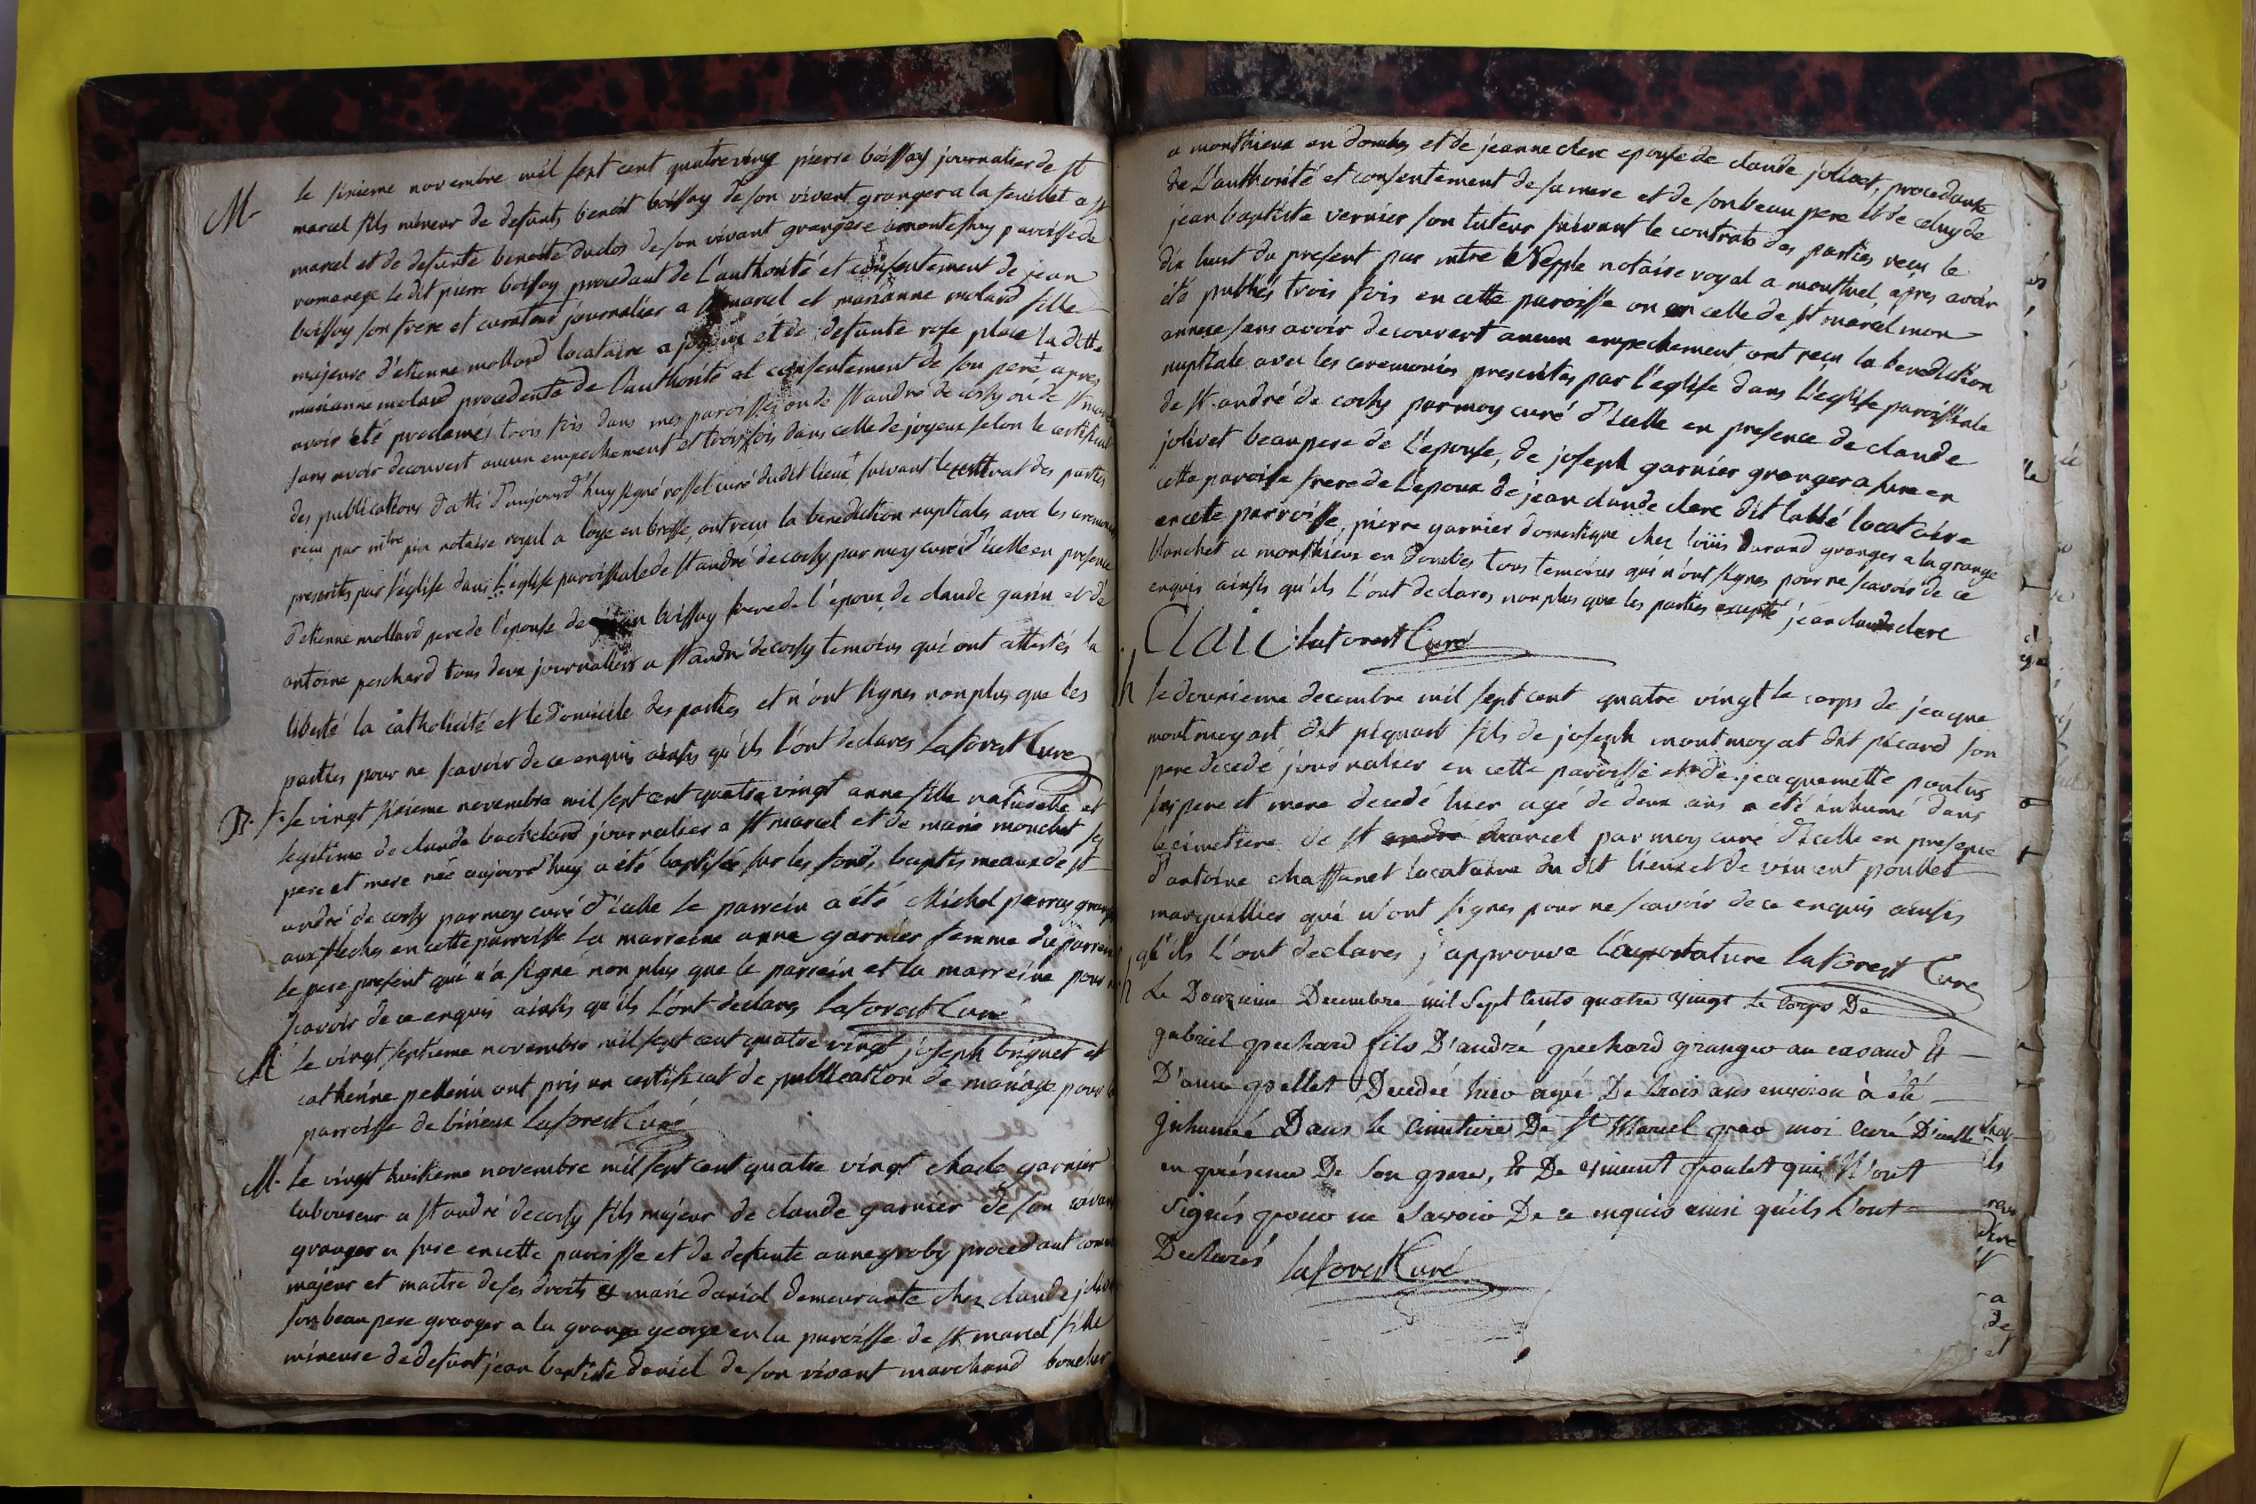 M
le sixieme novembre mil sept cent quatre vingt pierre boissoy journalier de st
marcel fils mineur de defunts benoit boissoy de son vivant granger a la feuillet a st
marcel et de defunte benoite duclos de son vivant grangere a montessuy paroisse de
romaneye ledit pierre boissoy procedant de l'authorité et consentement de jean
boissoy son frere et curateur journalier a st marcel et marianne molard fille
majeure d'etienne mollard locataire a joyeux et de defunte rose place la ditte
marianne molard procedente de l'authorité et consentement de son pere + apres
avoir été proclamés trois fois dans mes paroisses ou de st andré de corsy ou de st marcel
sans avoir decouvert aucun empechement et trois fois dans celle de joyeux selon le certificat
des publications datté d'aujourd'huy signé rosset curé dudit lieux + suivant le contrat des parties
reçu par mtre pin notaire royal a loye en bresse, ont reçu la benediction nuptiale avec les ceremonies
prescrites par l'eglise dans l'eglise paroissiale de st andré de corsy par moy curé d'icelle en presence
d'etienne mollard pere de l'epouse de jean boissoy frere de l'epoux, de claude garin et de
antoine peschard tous deux journaliers a st andré de corsy temoins qui ont attestés la
liberté la catholicité et le domicile des parties et n'ont signes non plus que les
parties pour ne scavoir de ce enquis ainsis qu'ils l'ont declares Laforest Curé
B. f. le vingt sixieme novembre mil sept cent quatre vingt anne fille naturelle et
legitime de claude bachelard journalier a st marcel et de marie monchet ses
pere et mere née aujourd'huy a été baptisée sur les fonds baptismeaux de st
andré de corsy par moy curé d'icelle le parrein a été Michel perray granger
aux fleches en cette parroisse la marreine anne garnier femme du parrein
le pere present qui n'a signé non plus que le parrein et la marreine pour ne
scavoir de ce enquis ainsis qu'ils l'ont declares Laforest Curé
M le vingt septieme novembre mil sept cent quatre vingt joseph briquet et
catherine pellenin ont pris un certificat de publication de mariage pour la
parroisse de birieux Laforest Curé
M. le vingt huitieme novembre mil sept cent quatre vingt garnier
laboureur a st andré de corsy fils majeur de claude garnier de son vivant
granger a sure en cette paroisse et de defunte anne groby procedant comme
majeur et maitre de ses droits et marie daniel demeurante chez claude jolivet
son beau pere granger a la grange george en la paroisse de st marcel fille
mineure de defunt jean baptiste daniel de son vivant marchand boucher
a monthieux en dombes et de jeanne clerc epouse de claude jolivet, procedante
de l'authorité et consentement de sa mere et de son beau pere et de celuy de
jean baptiste vernier son tuteur suivant le contrats des parties reçu le
dix huit du present par mtre notaire royal a montluel, apres avoir
été publiés trois fois en cette paroisse ou en celle de st marcel mon
annexe sans avoir decouvert aucun empechement ont reçu la benediction
nuptiale avec les ceremonies prescrites par l'eglise dans l'eglise paroissiale
de st andré de corsy par moy curé d'icelle en presence de claude
jolivet beau pere de l'epouse, de joseph garnier granger a sure en
cette paroisse frere de l'epoux de jean claude clerc dit l'abbé locataire
en cete parroisse, pierre garnier domestique chez louis durand granger a la grange
blanchet a monthieux en dombes tous temoins qui n'ont signes pour ne scavoir de ce
enquis ainsis qu'ils l'ont declares non plus que les parties excepté jean claude clerc
Claic Laforest Curé
h le douxieme decembre mil sept cent quatre vingt le corps de jeaque
montmoyart dit piquart fils de joseph montmoyat dit picard son
pere decedé journalier en cette paroisse et de jeaquemette pontus
ses pere et mere decedé hier agé de deux ans a été inhumé dans
le cimetiere de st andré marcel par moy curé d'icelle en presence
d'antoine chaffanet locataire du dit lieux et de vincent poullet
marguillier qui n'ont signes pour ne scavoir de ce enquis ainsis
qu'ils l'ont declares j'approuve Laforest Curé
h Le Douzieme Decembre mil Sept Cents quatre vingt Le Corps De
gabriel pechard fils D'andré pechard granger au casaud Et
D'anne pellet Decedée hier agée De trois ans environ à été
Inhumée Dans Le Cimetiere De St Marcel par moi Curé D'icelle
en présence De Son pere, Et De vincent poulet qui N'ont
Signés pour ne Savoir De ce enquis ainsi qu'ils L'ont
Declarés Laforest Curé